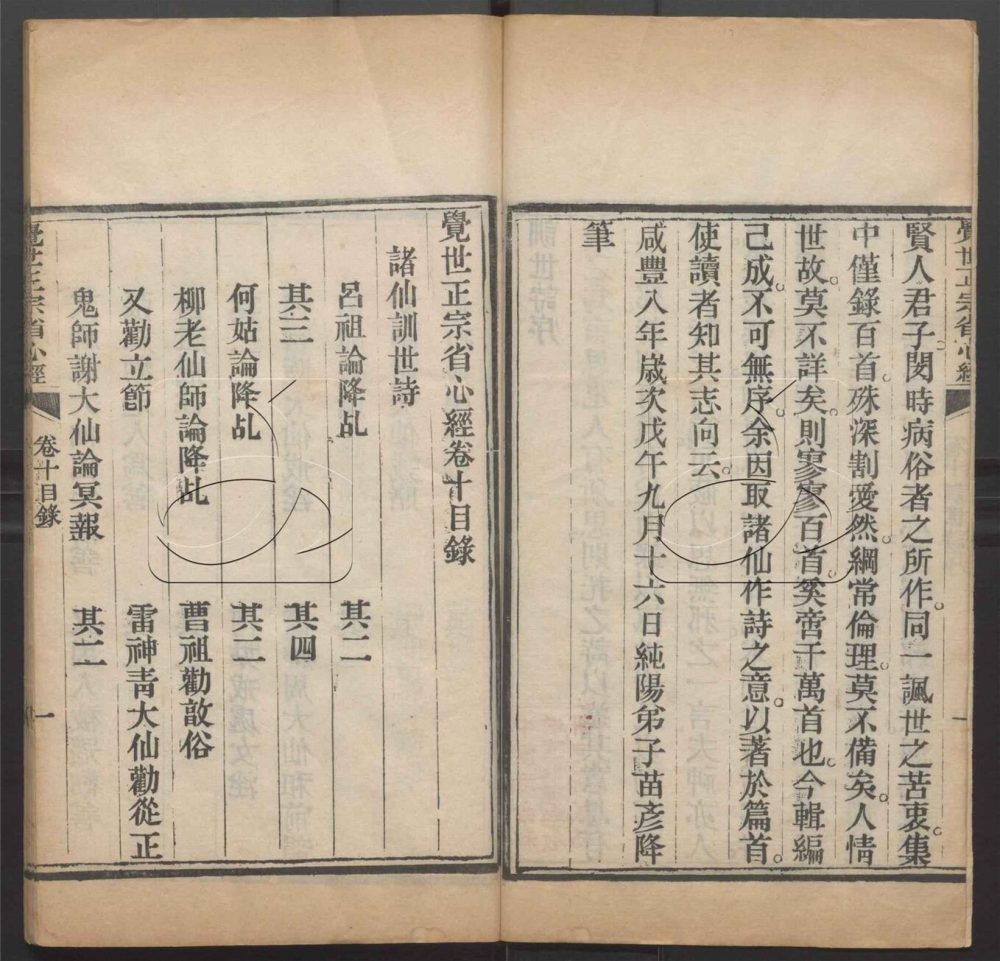 覺世正宗省心經
一
賢人君子閔時病俗者之所作。同一諷世之苦衷。集
中僅錄百首。殊深割愛。然綱常倫理。莫不備矣。人情
世故。莫不詳矣。則寥寥百首。奚啻千萬首也。今輯編
已成。不可無序。余因取諸仙作詩之意。以著於篇首。
使讀者知其志向云。
咸豐八年歲次戊午九月十六日純陽弟子苗彥降
筆
覺世正宗省心經卷十目錄
諸仙訓世詩
呂祖論降乩 其二
其三 其四
何姑論降乩 其二
柳老仙師論降乩 曹祖勸敦俗
又勸立節 雷神青大仙勸從正
鬼師謝大仙論冥報 其二
覺世正宗省心經 卷十目錄 一